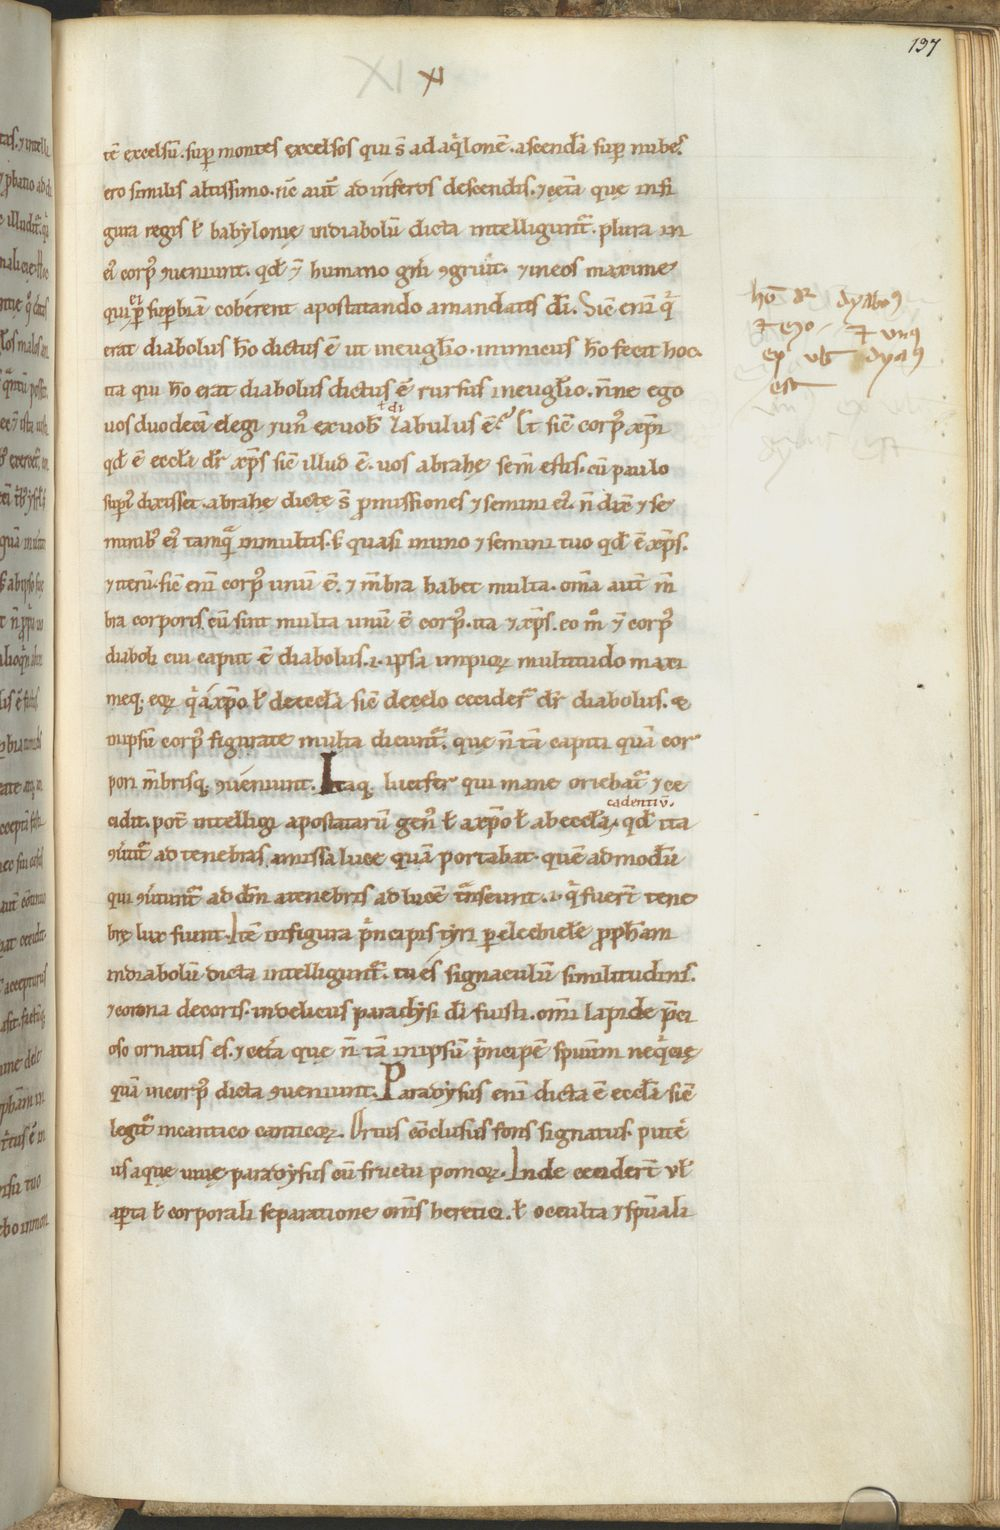 197
XI XI
tē excelsū. sup montes excelsos qui s̄ ad aq̇lonē. ascendā sup nubes.
ero similis altissimo. nc̄ aut̄ ad inferos descendis. ⁊ cet̄a quę in fi
gura regis ł babylonię in diabolū dicta intelligunt̄. plura in
ei᾽ corp᾽ ꝯueniunt. qd̄ ⁊ humano gn̄i ꝯgruit. ⁊ in eos maxime
qui ei p̱ sup̱biā coherent apostatando a mandatis dī. Sic̄ eni q̄
erat diabolus hō dictus ē ut in euuḡlio. inimicus hō fecit hoc.
ita qui hō erat diabolus dictus ē rursus in euuḡlio. nn̄e ego
uos duodecī elegi ⁊ un᾽ ex uob᾽ ł di zabulus ē? Et sic̄ corp᾽ xp̄i
qd̄ ē ecclā dr̄ xp̄s sic̄ illud ē. uos abrahę sem̄ estis. cū paulo
superi᾽ dixisset. abrahę dictę s̄ p̱missiones ⁊ semini ei᾽. n̄ dix̄ ⁊ se
minib᾽ ei᾽ tamq̄ in multis. s᾽ quasi in uno ⁊ semini tuo qd̄ ē xp̄s.
⁊ iterū. sic̄ eni corp᾽ unū ē. ⁊ m̄bra habet multa. om̄a aut̄ m̄
bra corporis cū sint multa unū ē corp᾽. ita ⁊ xp̄s. eo m̊ ⁊ corp᾽
diaboli cui caput ē diabolus. i. ipsa impioꝝ multitudo maxi
meq. eoꝝ q̇ a xp̄o ł de ecclā sic̄ de cęlo cecidert̄ dr̄ diabolus. ⁊
in ipsū corp᾽ figurate multa dicunt̄. que n̄ tā capiti quā cor
pori m̄brisq. ꝯueniunt. Itaq. lucifer qui mane oriebat̄ ⁊ ce
cadentiū.
cidit. pot̄ intelligi apostatarū gen᾽ ł a xp̄o ł ab ecclā. qd̄ ita
ꝯuertit̄ ad tenebras amissa luce quā portabat. quēadmodū
qui ꝯuertunt̄ ad dm̄ a tenebris ad lucē transeunt. i. q̇ fuert̄ tene
brę lux fiunt. Itē in figura p̄ncipis tyri p̱ ezechielē p̱phetam
in diabolū dicta intelligunt̄. tu es signaculū similitudinis.
⁊ corona decoris. in deliciis paradysi dī fuisti. omī lapide p̄ci
oso ornatus es. ⁊ cet̄a quę n̄ tā in ipsū p̄ncipē spiritum neq̇cię
quā in corp᾽ dicta ꝯueniunt. Paradysus eni dicta ē ecclā sic̄
legit̄ in cantico canticoꝝ. Ortus cōclusus fons signatus. pute
us aquę uiuę paradysus cū fructu pomoꝝ. Inde ceciderūt vł
ap̱ta ł corporali separatione om̄s heretici. ł occulta ⁊ sp̄uali
hō dr̄ dyabol᾽
⁊ e9o ⁊ unus
ex vob̄ dyabol᾽
est